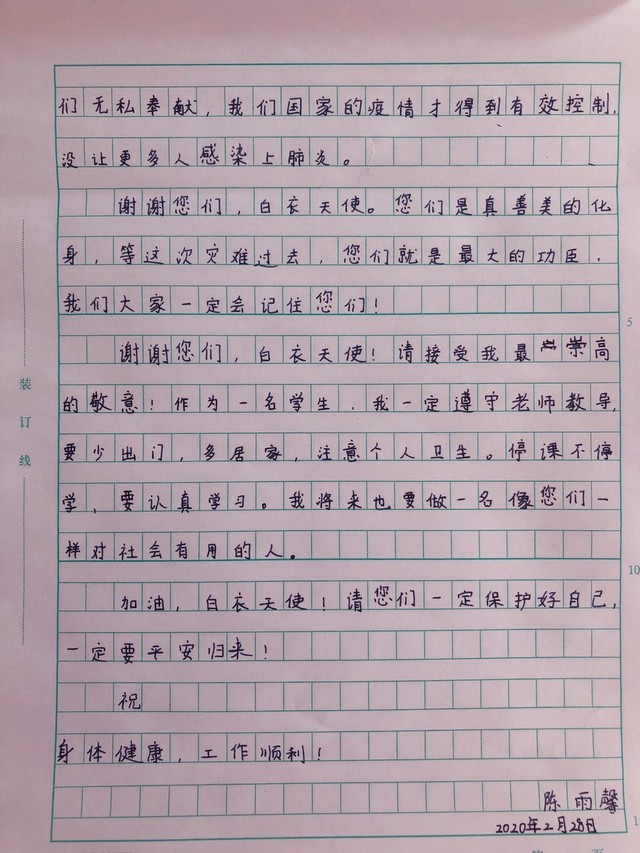 们无私奉献，我们国家的疫情才得到有效控制，
没让更多人感染上肺炎。
谢谢您们，白衣天使。您们是真善美的化
身，等这次灾难过去，您们就是最大的功臣，
我们大家一定会记住您们！
5
谢谢您们，白衣天使！请接受我最崇高
的敬意！作为一名学生，我一定遵守老师教导，
要少出门，多居家，注意个人卫生。停课不停
学，要认真学习。我将来也要做一名像您们一
样对社会有用的人。
10
加油，白衣天使！请您们一定保护好自己，
一定要平安归来！
祝
身体健康，工作顺利！
陈雨馨
2020年2月28日
装
订
线